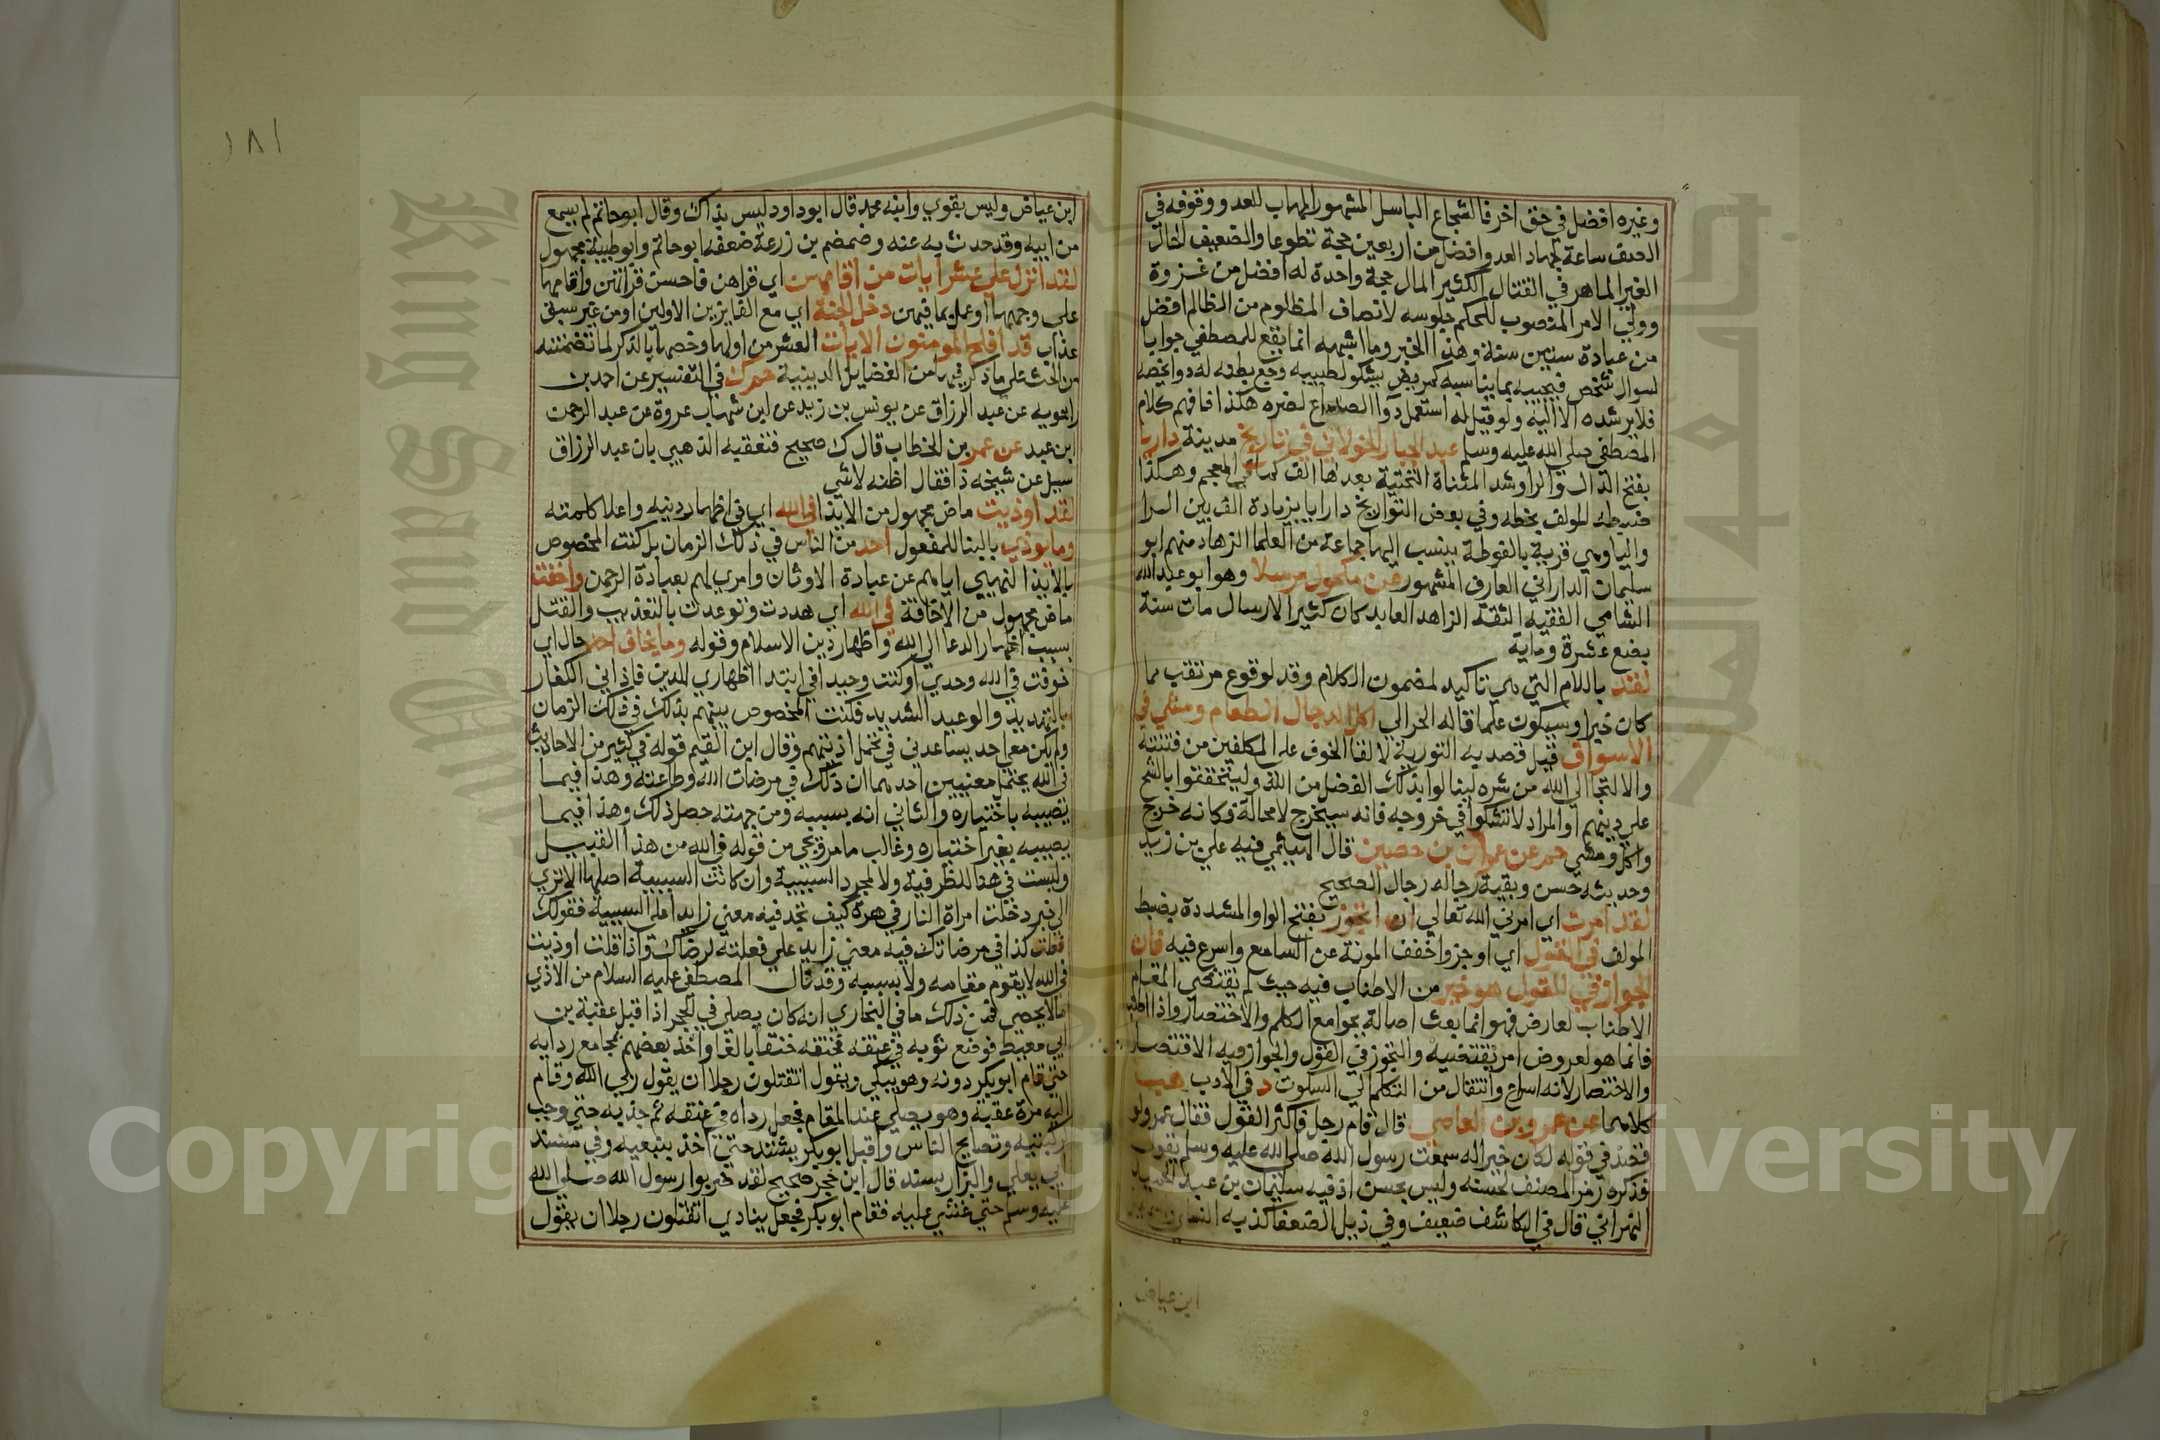 وغيره افضل في حق اخر فالشجاع الباسل المشهور المهاب للعدو ووقوفه في
الصف ساعة لجهاد العدو افضل من اربعين حجة تطوعا والضعيف القتال
الغير الماهر في القتال الكثير المال حجة واحدة له افضل من غزوة
وولي الامر المنصوب للحكم جلوسه لانصاف المظلوم من الظالم افضل
من عبادة ستين سنة وهذا الخبر وما اشبهه انما يقع للمصطفي جوابا
لسوال شخص فيجيبه بما يناسبه كمريض يشكو لطبيبه وجع بطنه له دوا يخصه
فلا يرشده الا اليه ولو قيل له استعمل دوا الصداع لضره هكذا فافهم كلام
المصطفي صلي الله عليه وسلم عبد الجبار الخولاني في تاريخ مدينة داريا
بفتح الدال والرا وشد المثناة التحتية بعدها الف كما في المعجم وهكذا
ضبطه المولف بخطه وفي بعض التواريخ دارايا بزيادة الف بين الرا
واليا وهي قرية بالغوطة ينسب اليها جماعة من العلما الزهاد منهم ابو
سليمان الداراني العارف المشهور عن مكحول مرسلا وهو ابو عبد الله
الشامي الفقيه الثقة الزاهد العابد كان كثير الارسال مات سنة
بضع عشرة وماية
لقد باللام التي هي تاكيد لمضمون الكلام وقد لوقوع مرتقب مما
كان خيرا وسيكون علما قاله الحرالي اكل الدجال الطعام ومشي في
الاسواق قيل قصد به التورية لالقا الخوف علي المكلفين من فتنته
والالتجا الي الله من شره لينالوا بذلك الفضل من الله وليتحققوا بالشح
علي دينهم او المراد لا تشكوا في خروجه فانه سيخرج لا محالة وكانه خرج
واكل ومشي حم عن عمران بن حصين قال الهيثمي فيه علي بن زيد
وحديثه حسن وبقية رجاله رجال الصحيح
لقد امرت اي امرني الله تعالي ان اتجوز بفتح الواو المشددة بضبط
المولف في القول اي اوجز واخفف المونة عن السامع واسرع فيه فان
الجواز في القول هو خير من الاطناب فيه حيث لم يقتضي المقام
الاطناب لعارض فهو انما بعث اصالة بجوامع الكلم والاختصار واذا اطنب
فانما هو لعروض امر يقتضيه والتجوز في القول والجواز فيه الاقتصار
والاختصار لانه اسراع وانتقال من التكلم الي السكوت د في الادب هب
كلاهما عن عمرو بن العاصي قال قام رجل فاكثر القول فقال عمرو لو
قصد في قوله لكان خيرا له سمعت رسول الله صلي الله عليه وسلم يقول
فذكره رمز المصنف لحسنه وليس بحسن اذ فيه سليمان بن عبد الحميد
النهراني قال في الكاشف ضعيف وفي ذيل الضعفا كذبه النساي
ابن عياض
١٨١
ابن عياض وليس بقوي وابنه محمد قال ابو داود ليس بذاك وقال ابو حاتم لم يسمع
من ابيه وقد حدث به عنه وضمضم بن زرعة ضعفه ابو حاتم وابو طيبة مجهول
لقد انزل علي عشر ايات من اقامهن اي قراهن فاحسن قراتهن واقامها
علي وجهها او عمل بما فيهن دخل الجنة اي مع الفايزين الاولين او من غير سبق
عذاب قد افلح المومنون الايات العشر من اولها وخصها بالذكر لما تضمنته
من الحث علي ما ذكر فيها من الفضايل الدينية حم ك في التفسير عن احمد بن
راهويه عن عبد الرزاق عن يونس بن زيد عن ابن شهاب عروة عن عبد الرحمن
ابن عبد عن عمر بن الخطاب قال ك صحيح فتعقبه الذهبي بان عبد الرزاق
سيل عن شيخه ذا فقال اظنه لا شي
لقد اوذيت ماض مجهول من الايذا في الله اي في اظهار دينه واعلا كلمته
وما يوذي بالبنا للمفعول احد من الناس في ذلك الزمان بل كنت المخصوص
بالايذا لنهيي اياهم عن عبادة الاوثان وامري لهم بعبادة الرحمن واخفت
ماض مجهول من الاخافة في الله اي هددت وتوعدت بالتعذيب والقتل
بسبب اظهار الدعا الي الله واظهار دين الاسلام وقوله وما يخاف احد حال اي
خوفت في الله وحدي وكنت وحيدا في ابتدا اظهاري للدين فاذاني الكفار
بالتهديد والوعيد الشديد فكنت المخصوص بينهم بذلك في ذلك الزمان
ولم يكن معي احد يساعدني في تحمل اذيتهم وقال ابن القيم قوله في كثير من الاحاديث
في الله يحتمل معنيين احدهما ان ذلك في مرضات الله وطاعته وهذا فيما
يصيبه باختياره والثاني انه بسببه ومن جهته حصل ذلك وهذا فيما
يصيبه بغير اختياره وغالب ما مر ويجي من قوله في الله من هذا القبيل
وليست في هنا للظرفية ولا لمجرد السببية وان كانت السببية اصلها الا تري
الي خبر دخلت امراة النار في هرة كيف تجد فيه معني زايدا علي السببية فقولك
فعلت كذا في مرضاتك فيه معني زايد علي فعلته لرضاك واذا قلت اوذيت
في الله لا يقوم مقامه ولا بسببه وقد قال المصطفي عليه السلام من الاذي
ما لا يحصي فمن ذلك ما في البخاري انه كان يصلي في الحجر اذ اقبل عقبة بن
ابي معيط فوضع ثوبه في عنقه فخنقه خنقا بالغا واخذ بعضهم بمجامع ردايه
حتي قام ابو بكر دونه وهو يبكي ويقول اتقتلون رجلا ان يقول ربي الله وقام
اليه مرة عقبة وهو يصلي عند المقام فجعل رداه في عنقه ثم جذبه حتي وجب
ركبتيه وتصايح الناس واقبل ابو بكر يشتد حتي اخذ بضبعيه وفي مسند
ابي يعلي والبزار بسند قال ابن حجر صحيح لقد ضربوا رسول الله صلي الله
عليه وسلم حتي غشي عليه فقام ابو بكر فجعل ينادي اتقتلون رجلا ان يقول